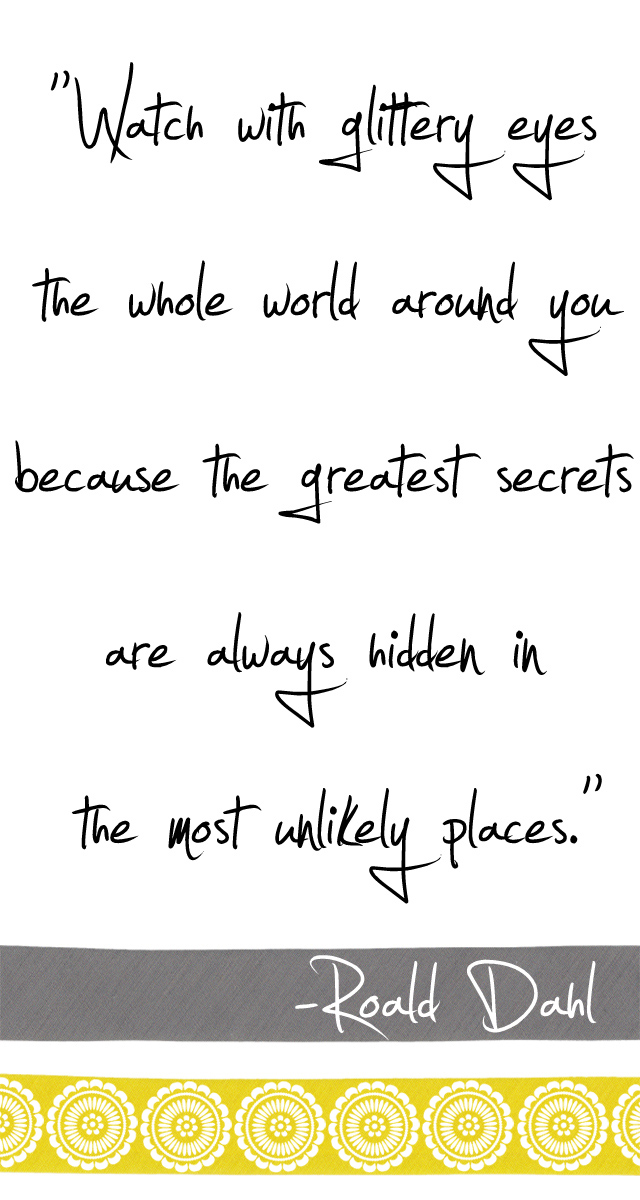 "Watch with glittery eyes
the whole world around you
because the greatest secrets
are always hidden in
the most unlikely places."
-Roald Dahl